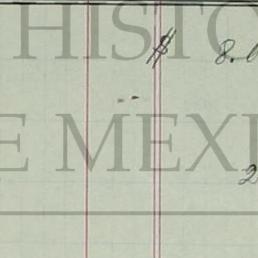 HISTO
$ 8.
E MEXI
2